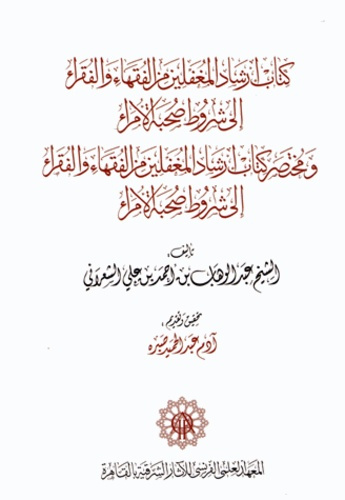 كتاب إرشاد المغفلين من الفقهاء والفقراء
إلى شروط صحبة الأمراء
ومختصر كتاب إرشاد المغفلين من الفقهاء والفقراء
إلى شروط صحبة الأمراء
تأليف
الشيخ عبد الوهاب بن احمد بن علي الشعراني
تحقيق وتقديم
آدم عبد الحميد صبره
المعهد العلمي الفرنسي للآثار الشرقية بالقاهرة